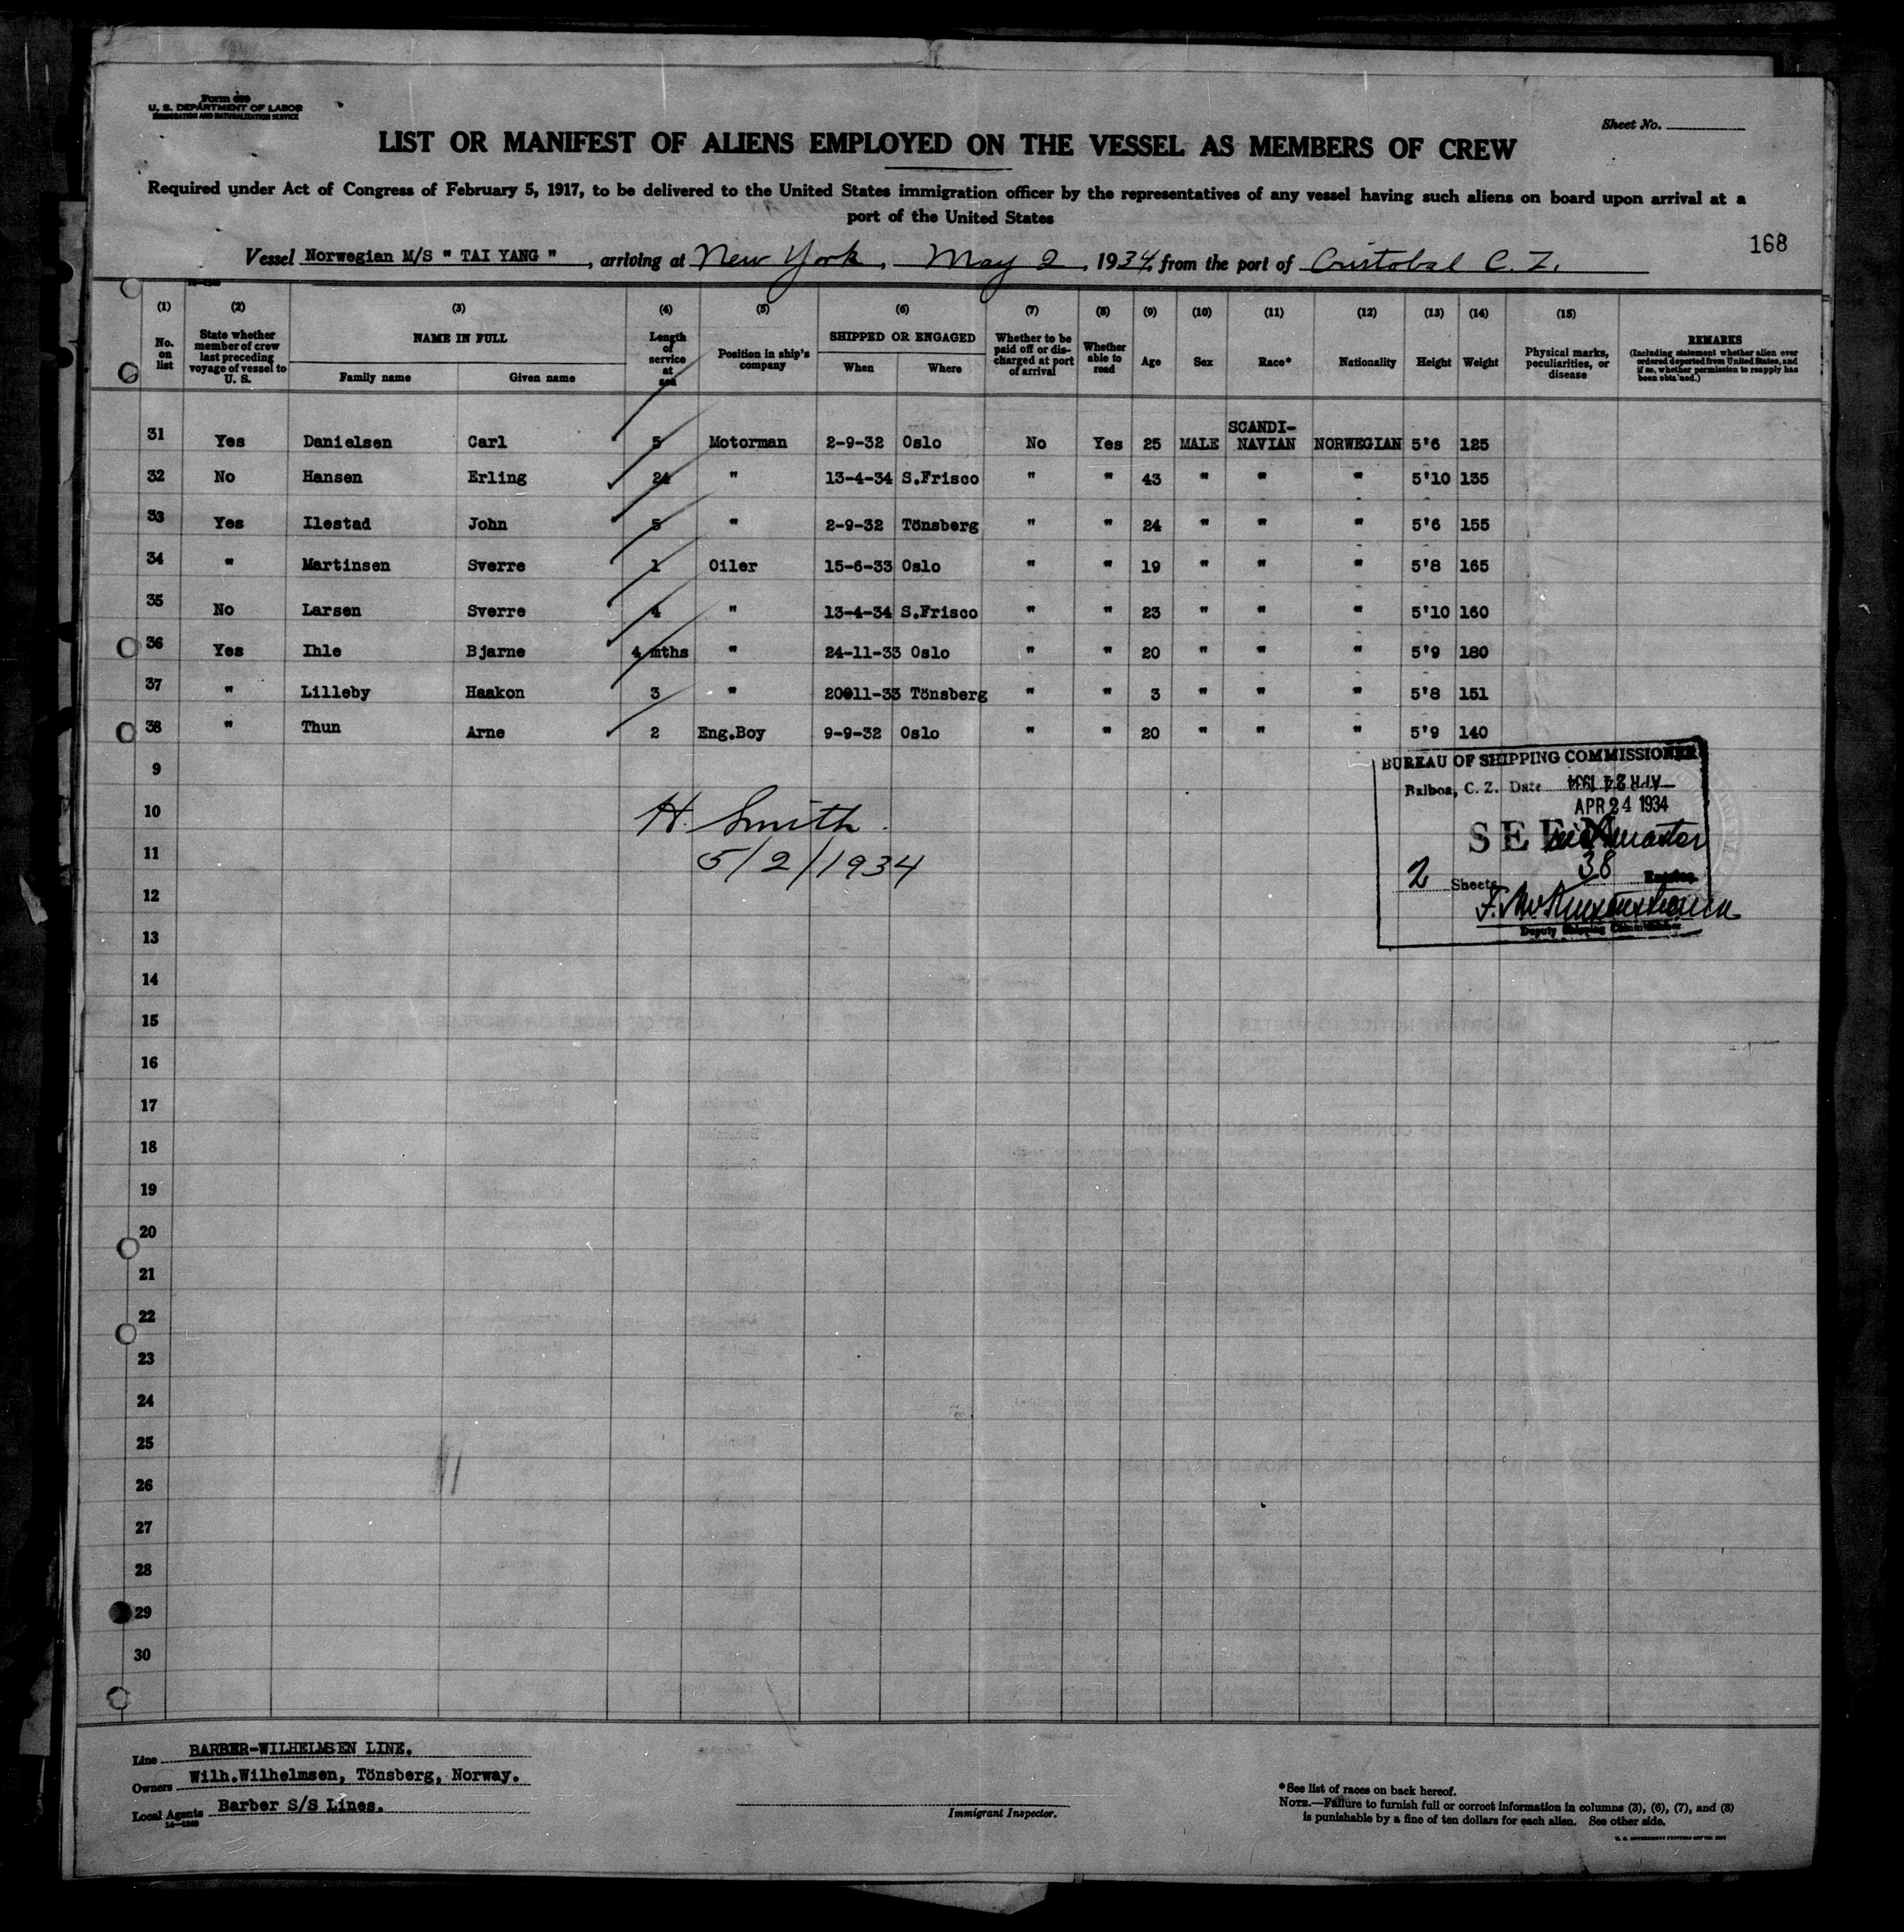 Form 680
U. S. DEPARTMENT OF LABOR
IMMIGRATION AND NATURALIZATION SERVICE
Sheet No.
LIST OR MANIFEST OF ALIENS EMPLOYED ON THE VESSEL AS MEMBERS OF CREW
Required under Act of Congress of February 5, 1917, to be delivered to the United States immigration officer by the representatives of any vessel having such aliens on board upon arrival at a
port of the United States
168
Vessel Norwegian M/S " TAI YANG ", arriving at New York, May 2, 1934, from the port of Cristobal C. Z.
(1) (2) (3) (4) (5) (6) (7) (8) (9) (10) (11) (12) (13) (14) (15)
No. on list
State whether member of crew last preceding voyage of vessel to U. S.
NAME IN FULL
Family name Given name
Length of service at sea
Position in ship's company
SHIPPED OR ENGAGED
When Where
Whether to be paid off or discharged at port of arrival
Whether able to read
Age
Sex
Race*
Nationality
Height
Weight
Physical marks, peculiarities, or disease
REMARKS
(Including statement whether alien ever ordered deported from United States, and if so, whether permission to reapply has been obtained.)
31 Yes Danielsen Carl 5 Motorman 2-9-32 Oslo No Yes 25 MALE SCANDI-NAVIAN NORWEGIAN 5'6 125
32 No Hansen Erling 24 " 13-4-34 S.Frisco " " 43 " " " 5'10 135
33 Yes Ilestad John 5 " 2-9-32 Tönsberg " " 24 " " " 5'6 155
34 " Martinsen Sverre 1 Oiler 15-6-33 Oslo " " 19 " " " 5'8 165
35 No Larsen Sverre 4 " 13-4-34 S.Frisco " " 23 " " " 5'10 160
36 Yes Ihle Bjarne 4 mths " 24-11-33 Oslo " " 20 " " " 5'9 180
37 " Lilleby Haakon 3 " 20011-33 Tönsberg " " 3 " " " 5'8 151
38 " Thun Arne 2 Eng.Boy 9-9-32 Oslo " " 20 " " " 5'9 140
9
10
11
12
13
14
15
16
17
18
19
20
21
22
23
24
25
26
27
28
29
30
H. Smith
5/2/1934
BUREAU OF SHIPPING COMMISSIONER
Balboa, C. Z. Date APR 24 1934
APR 24 1934
SEEN
master
2 Sheets 38
Deputy Shipping Commissioner
Line BARBER-WILHELMSEN LINE.
Owners Wilh.Wilhelmsen, Tönsberg, Norway.
Local Agents Barber S/S Lines.
Immigrant Inspector.
*See list of races on back hereof.
NOTE.—Failure to furnish full or correct information in columns (3), (6), (7), and (8)
is punishable by a fine of ten dollars for each alien. See other side.